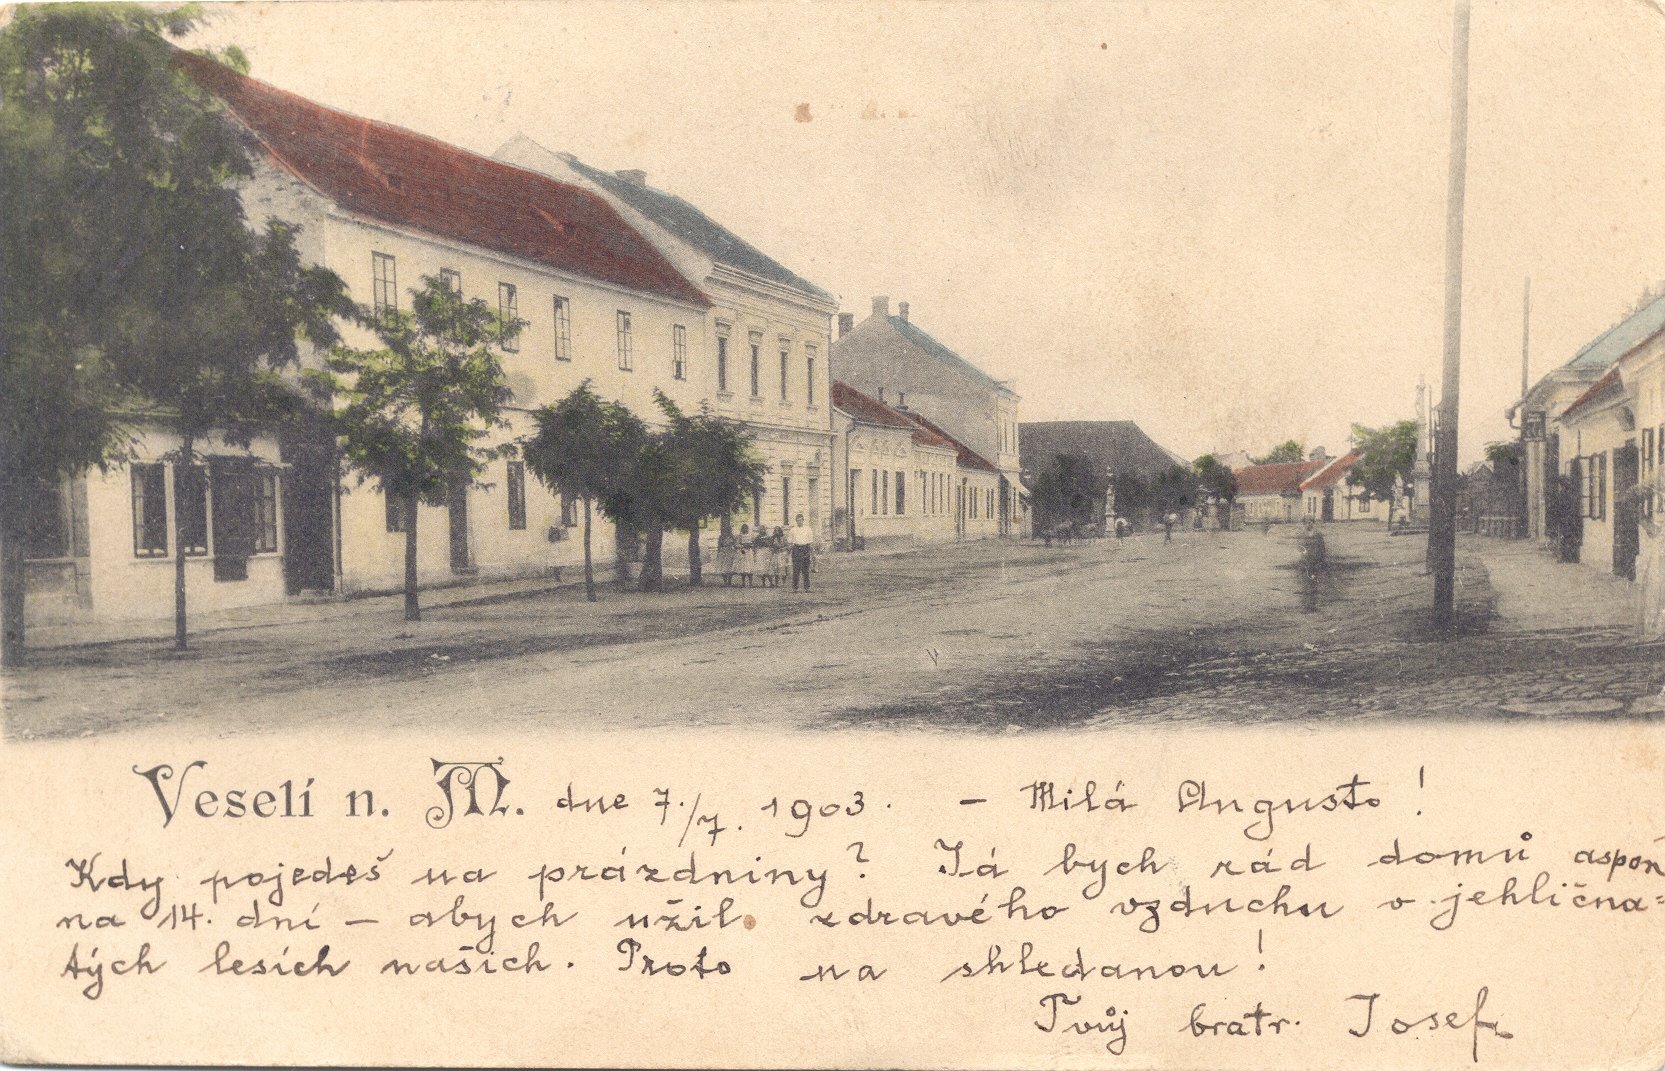 Veselí n. M. dne 7./7. 1903. – Milá Augusto!
Kdy pojedeš na prázdniny? Já bych rád domů aspoň
na 14. dní – abych užil zdravého vzduchu v jehlična=
tých lesích našich. Proto na shledanou!
Tvůj bratr. Josef